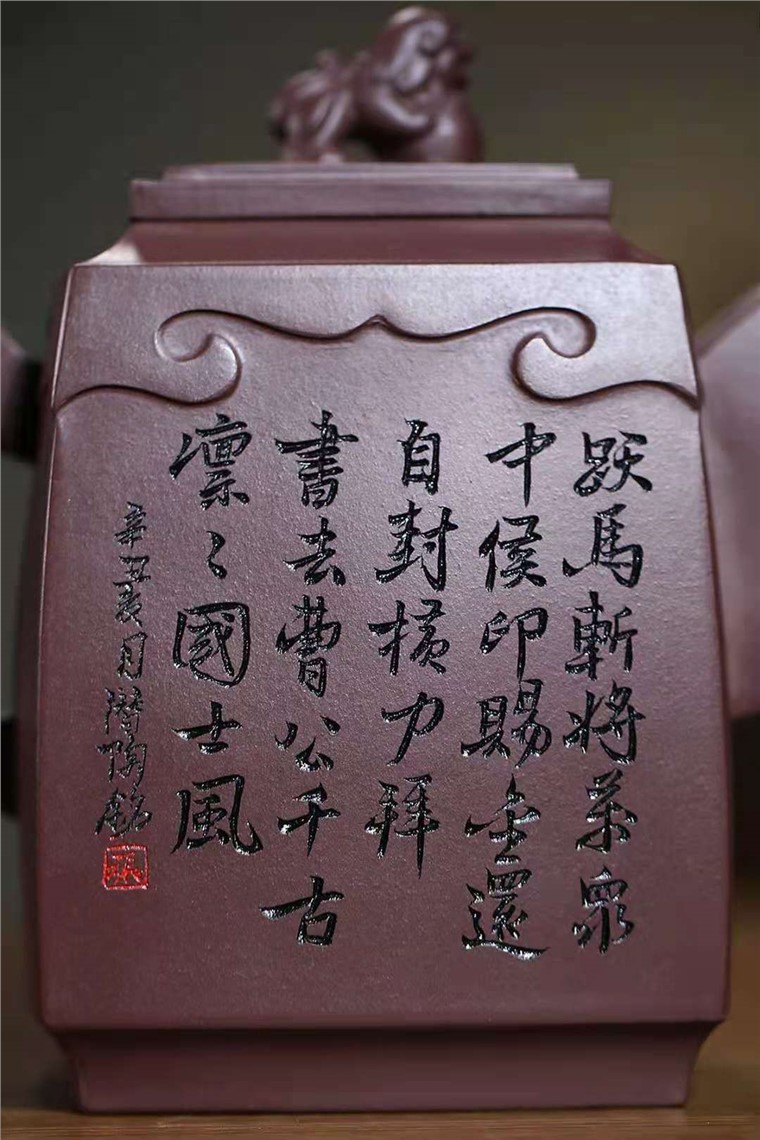 跃馬斬将萬衆
中侯印賜金還
自封横刀拜
書去曹公千古
凛〻國士風
辛丑亥月潜陶銘
張